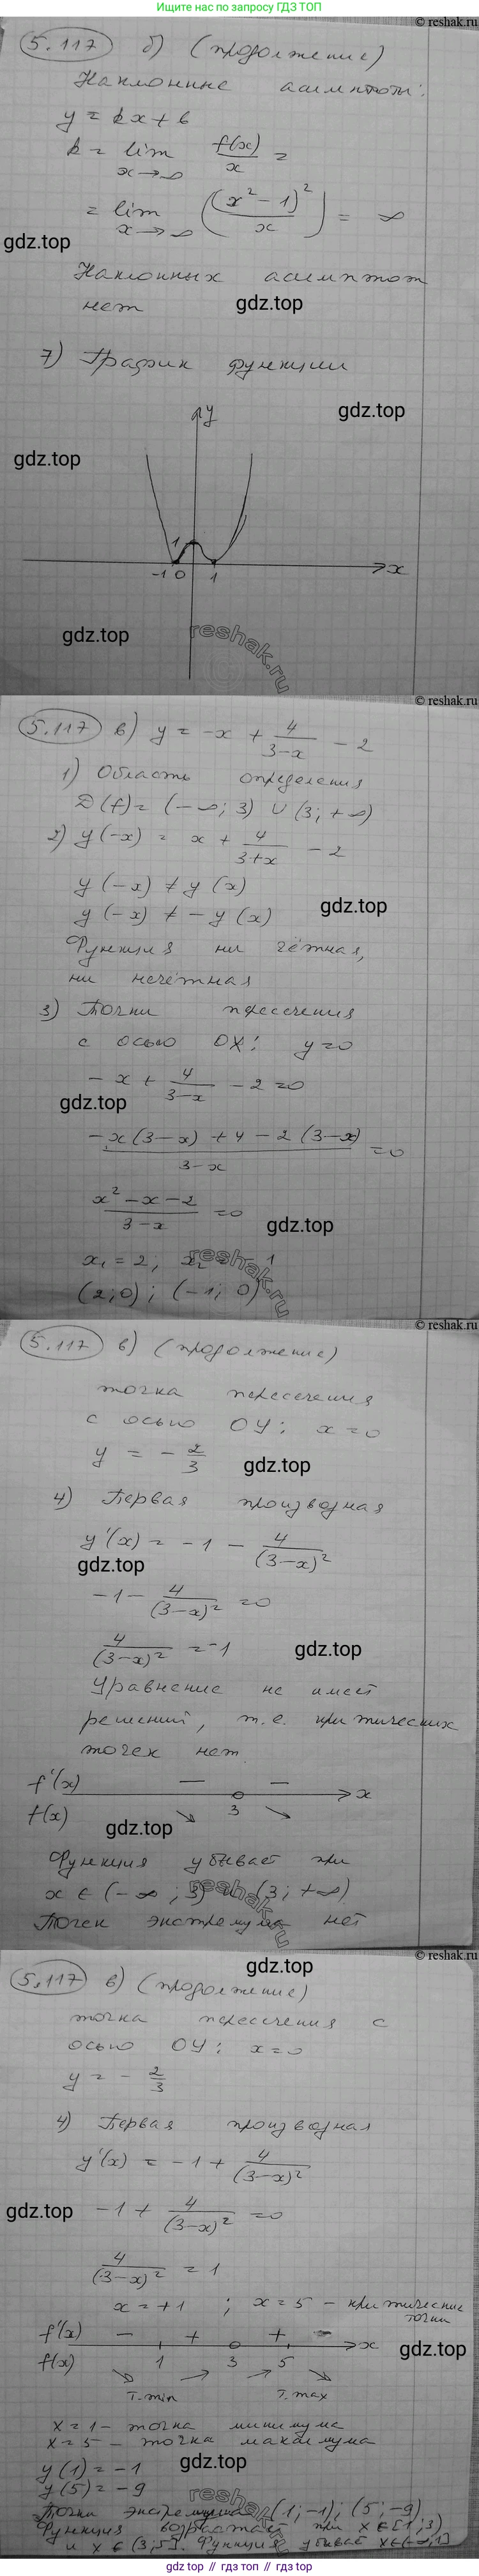 Ищи нас по запросу ГДЗ ТОП
© reshak.ru
5.117 б) (продолжение)
Наклонные асимптоты:
y = kx + b
k = lim f(x)/x =
x→∞
= lim ((x² - 1)²/x) = ∞
x→∞
gdz.top
Наклонных асимптот
нет
gdz.top
7) График функции
y
gdz.top
gdz.top
1
-1 0 1 x
gdz.top
reshak.ru
© reshak.ru
5.117 в) y = -x + 4/(3-x) - 2
1) Область определения
D(f) = (-∞; 3) ∪ (3; +∞)
2) y(-x) = x + 4/(3+x) - 2
y(-x) ≠ y(x)
gdz.top
y(-x) ≠ -y(x)
Функция ни чётная,
ни нечётная
3) Точки пересечения
с осью OX: y=0
-x + 4/(3-x) - 2 = 0
gdz.top
(-x(3-x) + 4 - 2(3-x))/(3-x) = 0
(x² - x - 2)/(3-x) = 0
gdz.top
x₁ = 2; x₂ = -1
(2; 0); (-1; 0)
reshak.ru
© reshak.ru
5.117 в) (продолжение)
точка пересечения
с осью OY: x=0
y = -2/3
gdz.top
4) Первая производная
y'(x) = -1 - 4/(3-x)²
gdz.top
-1 - 4/(3-x)² = 0
4/(3-x)² = -1
gdz.top
Уравнение не имеет
решений, т.е. критических
точек нет.
f'(x) — — x
f(x) ↘ 3 ↘
gdz.top
Функция убывает при
x ∈ (-∞; 3) и (3; +∞)
Точек экстремума нет
reshak.ru
© reshak.ru
gdz.top
5.117 в) (продолжение)
точка пересечения с
осью OY: x=0
y = -2/3
4) Первая производная
y'(x) = -1 + 4/(3-x)²
gdz.top
-1 + 4/(3-x)² = 0
4/(3-x)² = 1
x = +1 ; x = 5 - критические
точки
f'(x) — + + — x
f(x) 1 3 5
gdz.top
↘ ↗ ↗ ↘
т. min т. max
x = 1 - точка минимума
x = 5 - точка максимума
y(1) = -1
gdz.top
y(5) = -9
reshak.ru
Точки экстремума (1; -1); (5; -9)
Функция возрастает при x ∈ [1; 3)
и x ∈ (3; 5]. Функция убывает x ∈ (-∞; 1]
gdz top // гдз топ // gdz.top